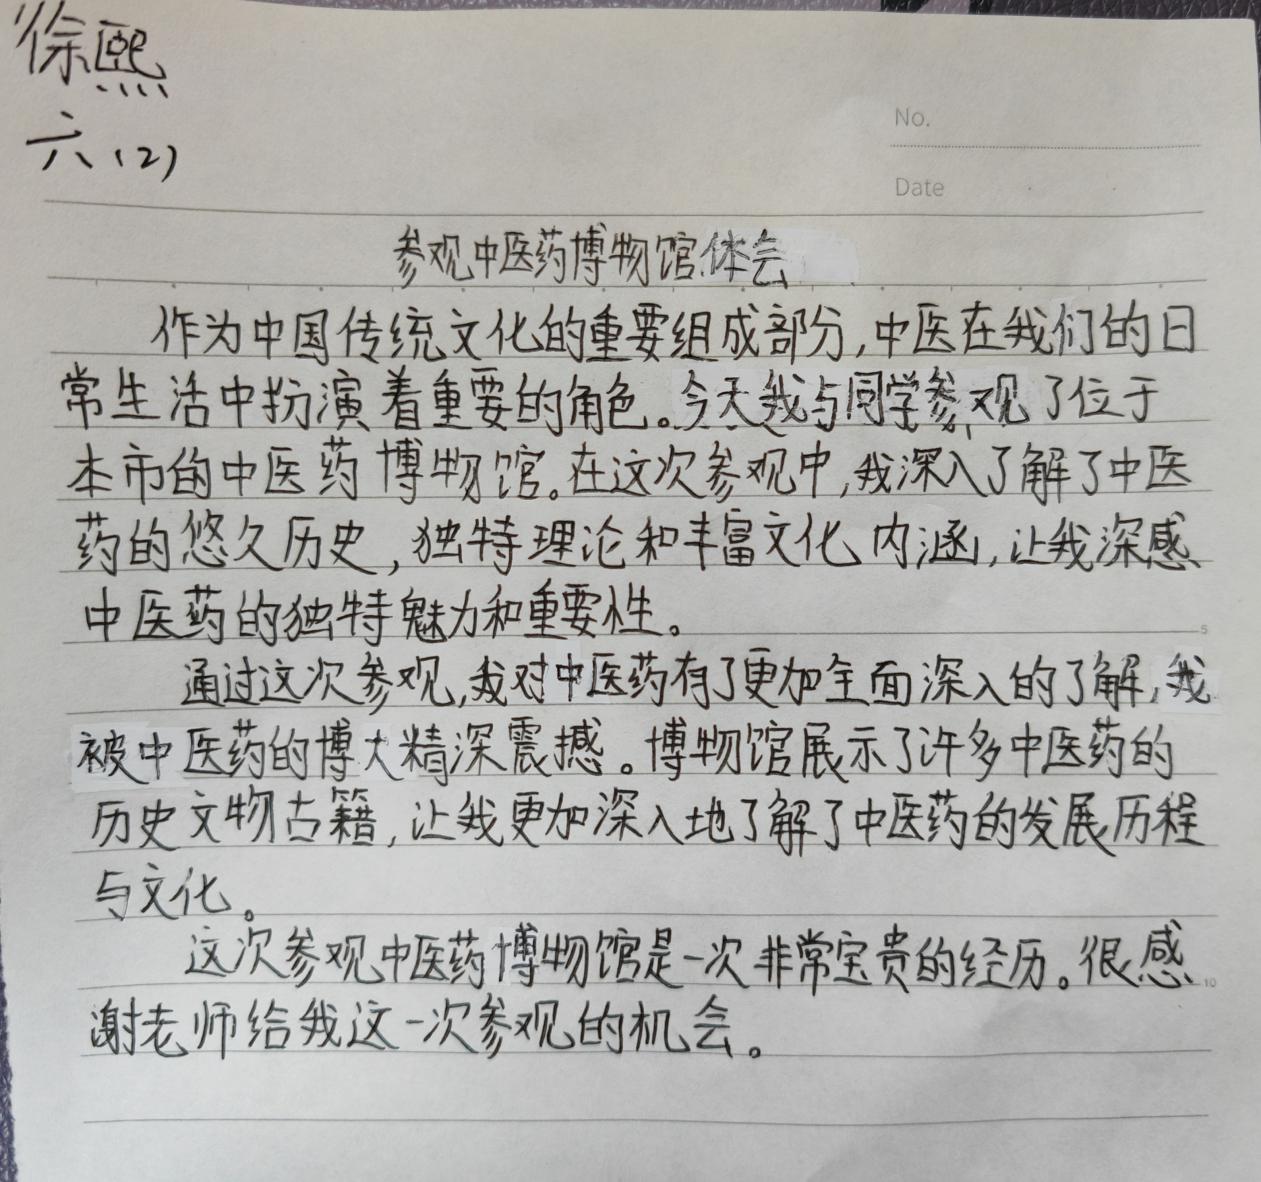 徐熙
六(2)
No.
Date
参观中医药博物馆体会
作为中国传统文化的重要组成部分,中医在我们的日
常生活中扮演着重要的角色。今天我与同学参观了位于
本市的中医药博物馆。在这次参观中,我深入了解了中医
药的悠久历史,独特理论和丰富文化内涵,让我深感
中医药的独特魅力和重要性。
5
通过这次参观,我对中医药有了更加全面深入的了解,我
被中医药的博大精深震撼。博物馆展示了许多中医药的
历史文物古籍,让我更加深入地了解了中医药的发展历程
与文化。
这次参观中医药博物馆是一次非常宝贵的经历。很感
10
谢老师给我这一次参观的机会。